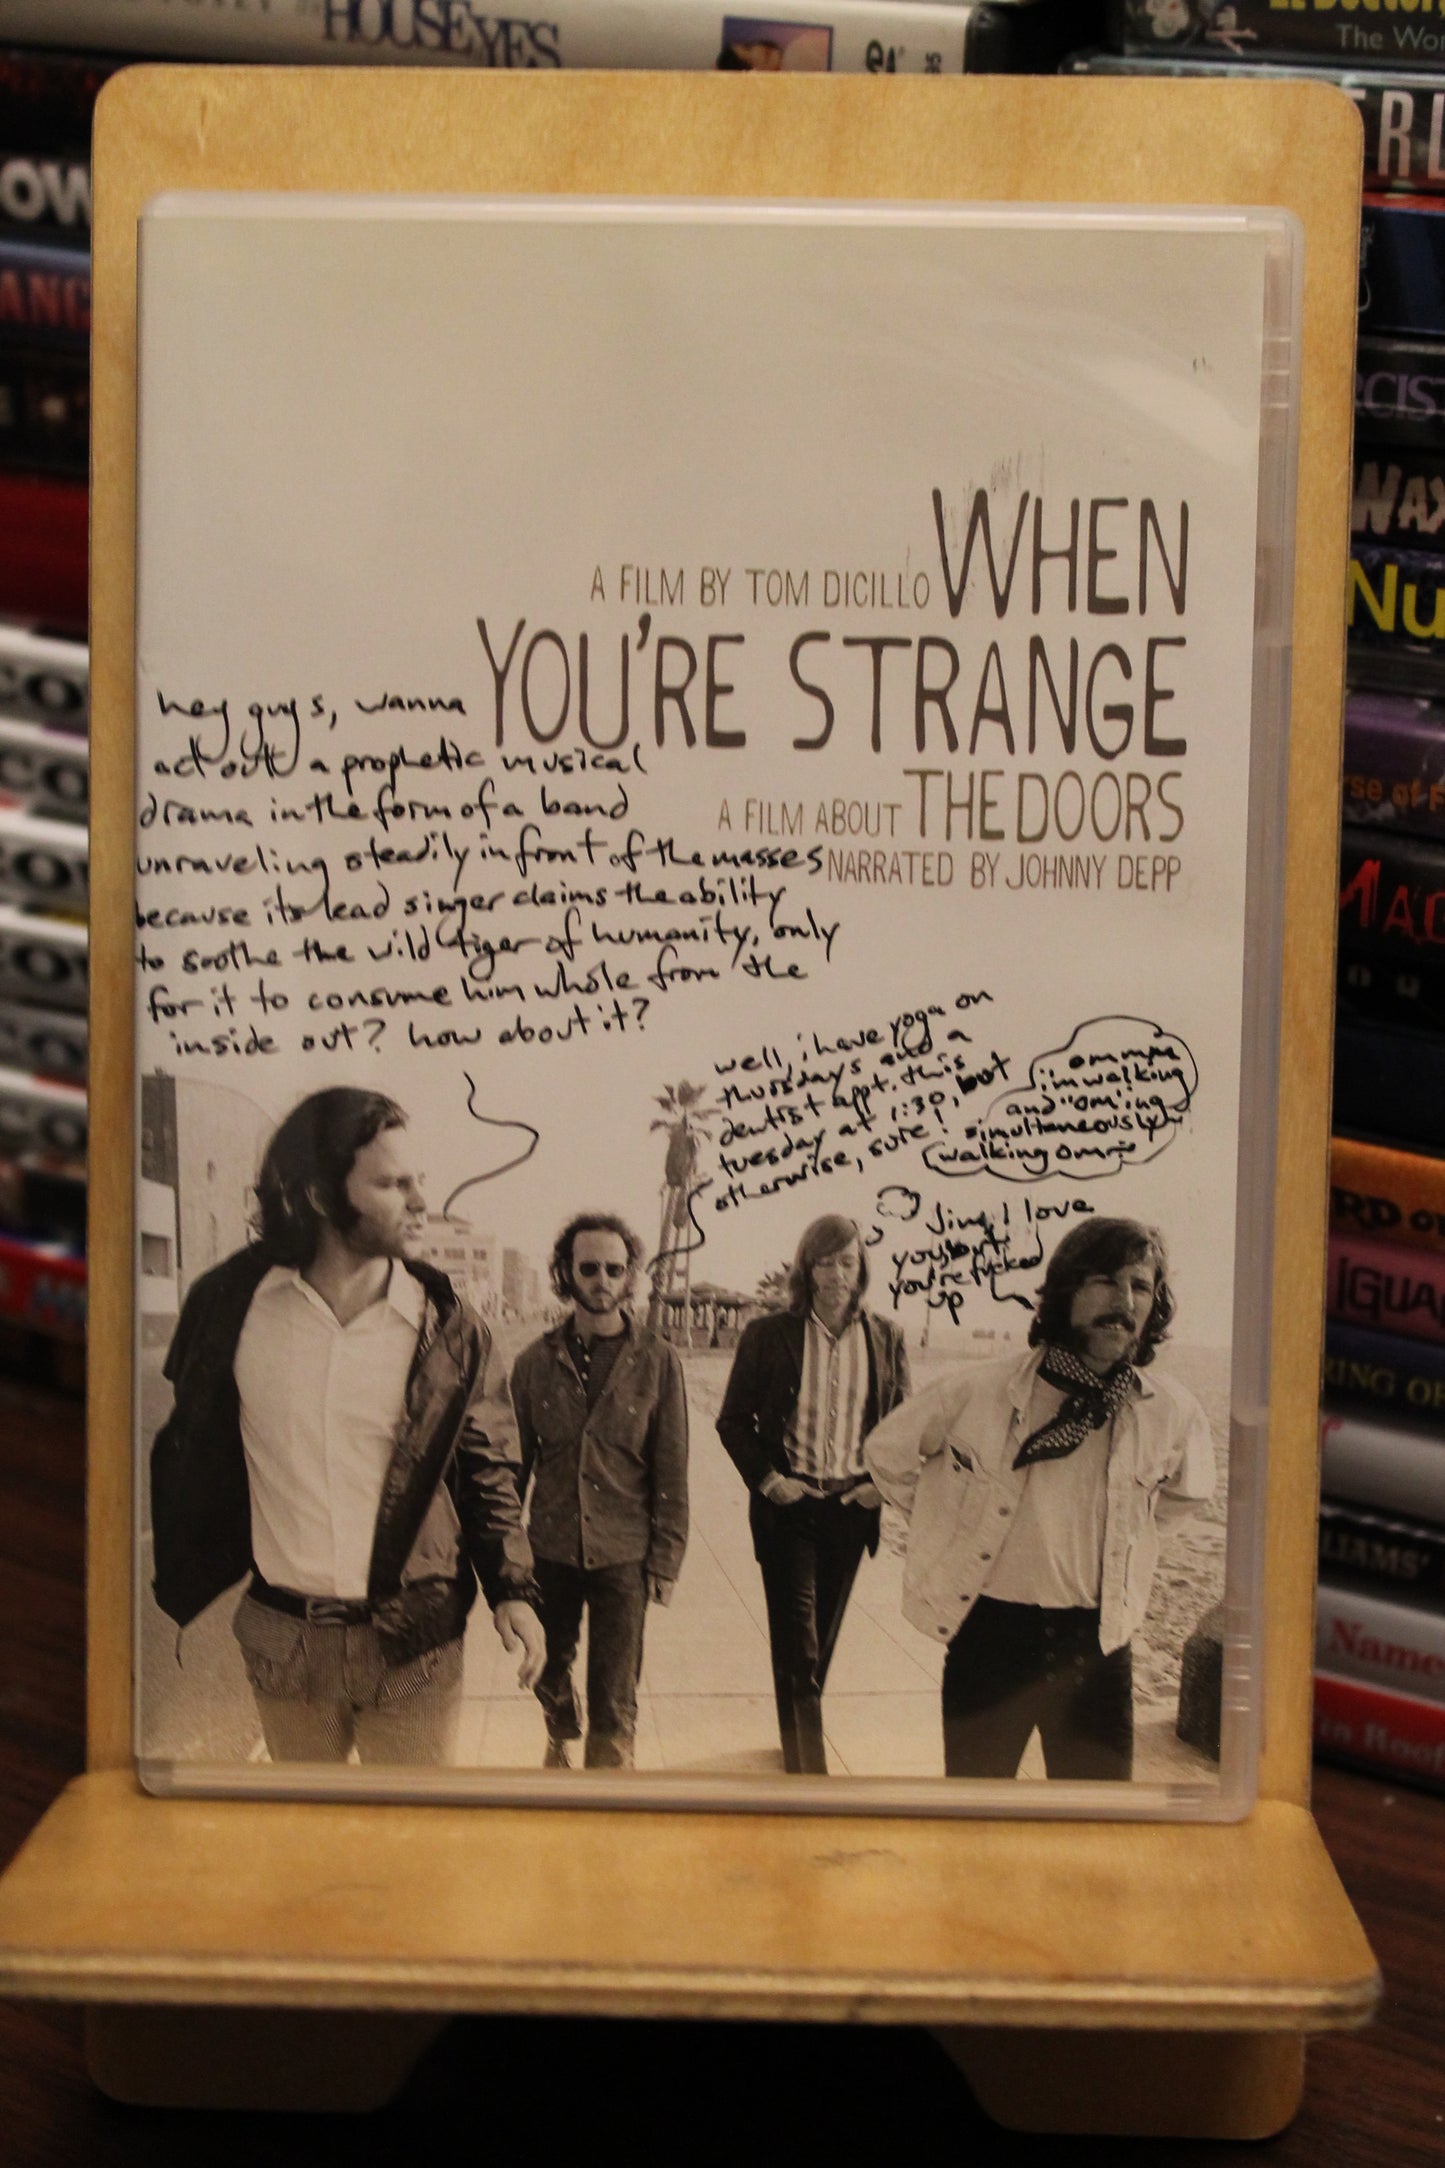 HOUSE OF YES
The Wor
OW
ANC
RCIS
WAX
NU
rse of F
MAC
A FILM BY TOM DICILLO WHEN
YOU'RE STRANGE
A FILM ABOUT THE DOORS
NARRATED BY JOHNNY DEPP
hey guys, wanna
act out a prophetic musical
drama in the form of a band
unraveling steadily in front of the masses
because its lead singer claims the ability
to soothe the wild tiger of humanity, only
for it to consume him whole from the
inside out? how about it?
well, i have yoga on
thursdays and a
dentist appt. this
tuesday at 1:30, but
otherwise, sure!
ommm
i'm walking
and "om"ing
simultaneously
walking om
Jim, I love
you, but
you're fucked
up
RD OF
IGUA
RING OF
LLIAMS'
Name
in Roof